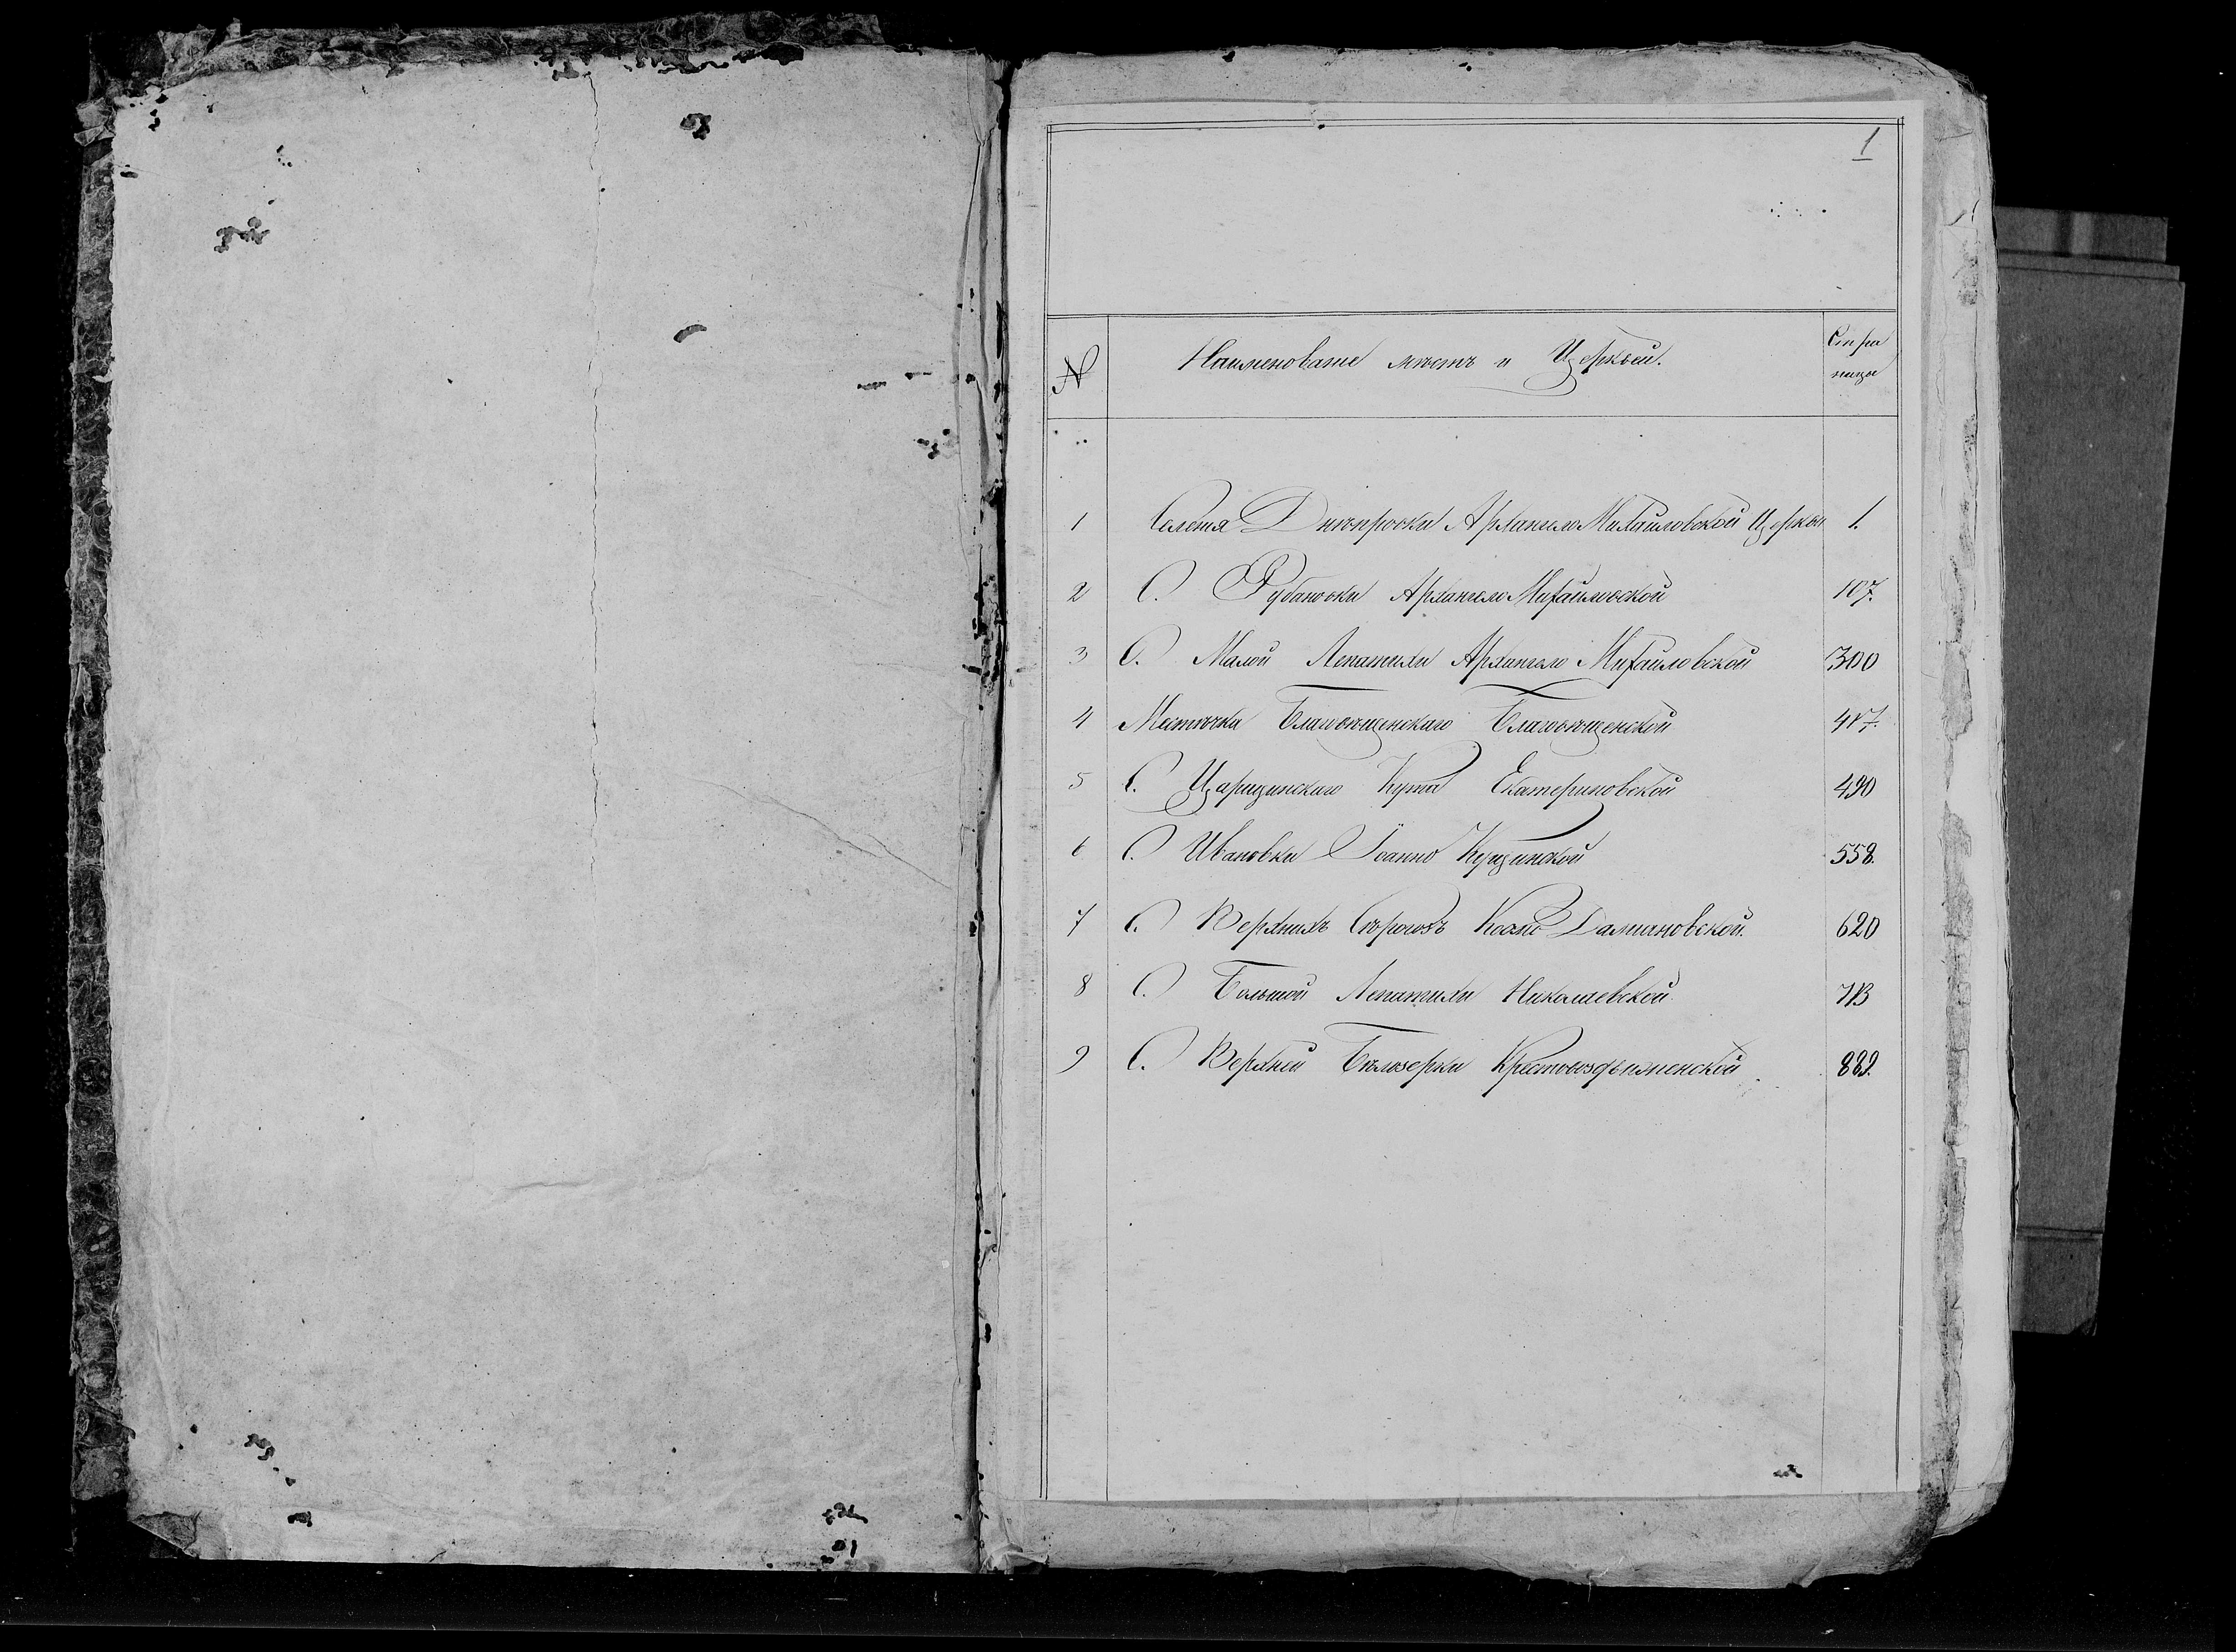 1
№ Наименованіе мѣстъ и Церквей. Стра
ница
1 Селенія Днѣпровки Архангело Михайловской Церкви 1.
2 С. Рубановки Архангело Михайловской 107.
3 С. Малой Лепатихи Архангело Михайловской 300
4 Местечка Благовѣщенскаго Благовѣщенской 417.
5 С. Царицинскаго Кута Екатериновской 490
6 С. Ивановки Іоанно 558.
7 С. Верхнихъ Сѣрогозъ Козмо Даміановской. 620
8 С. Большой Лепатихи Николаевской. 713
9 С. Верхней Бѣлозерки Крестовоздвиженской 889.